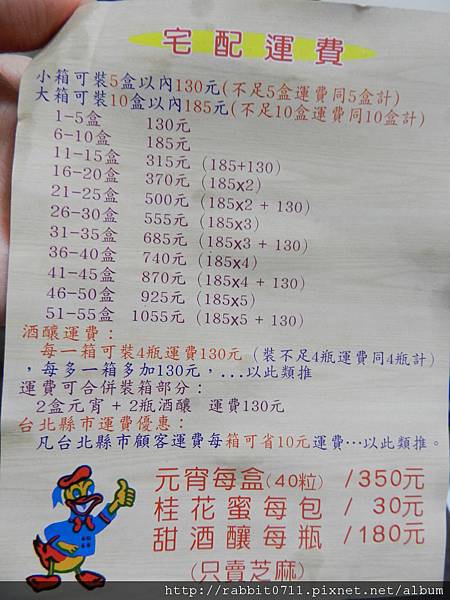 宅配運費
小箱可裝5盒以內130元(不足5盒運費同5盒計)
大箱可裝10盒以內185元(不足10盒運費同10盒計)
1-5盒 130元
6-10盒 185元
11-15盒 315元 (185+130)
16-20盒 370元 (185x2)
21-25盒 500元 (185x2 + 130)
26-30盒 555元 (185x3)
31-35盒 685元 (185x3 + 130)
36-40盒 740元 (185x4)
41-45盒 870元 (185x4 + 130)
46-50盒 925元 (185x5)
51-55盒 1055元 (185x5 + 130)
酒釀運費：
每一箱可裝4瓶運費130元 (裝不足4瓶運費同4瓶計)
，每多一箱多加130元，...以此類推
運費可合併裝箱部分：
2盒元宵 + 2瓶酒釀 運費130元
台北縣市運費優惠：
凡台北縣市顧客運費每箱可省10元運費…以此類推。
元宵每盒(40粒) /350元
桂花蜜每包 / 30元
甜酒釀每瓶 /180元
(只賣芝麻)
http://rabbit0711.pixnet.net/album